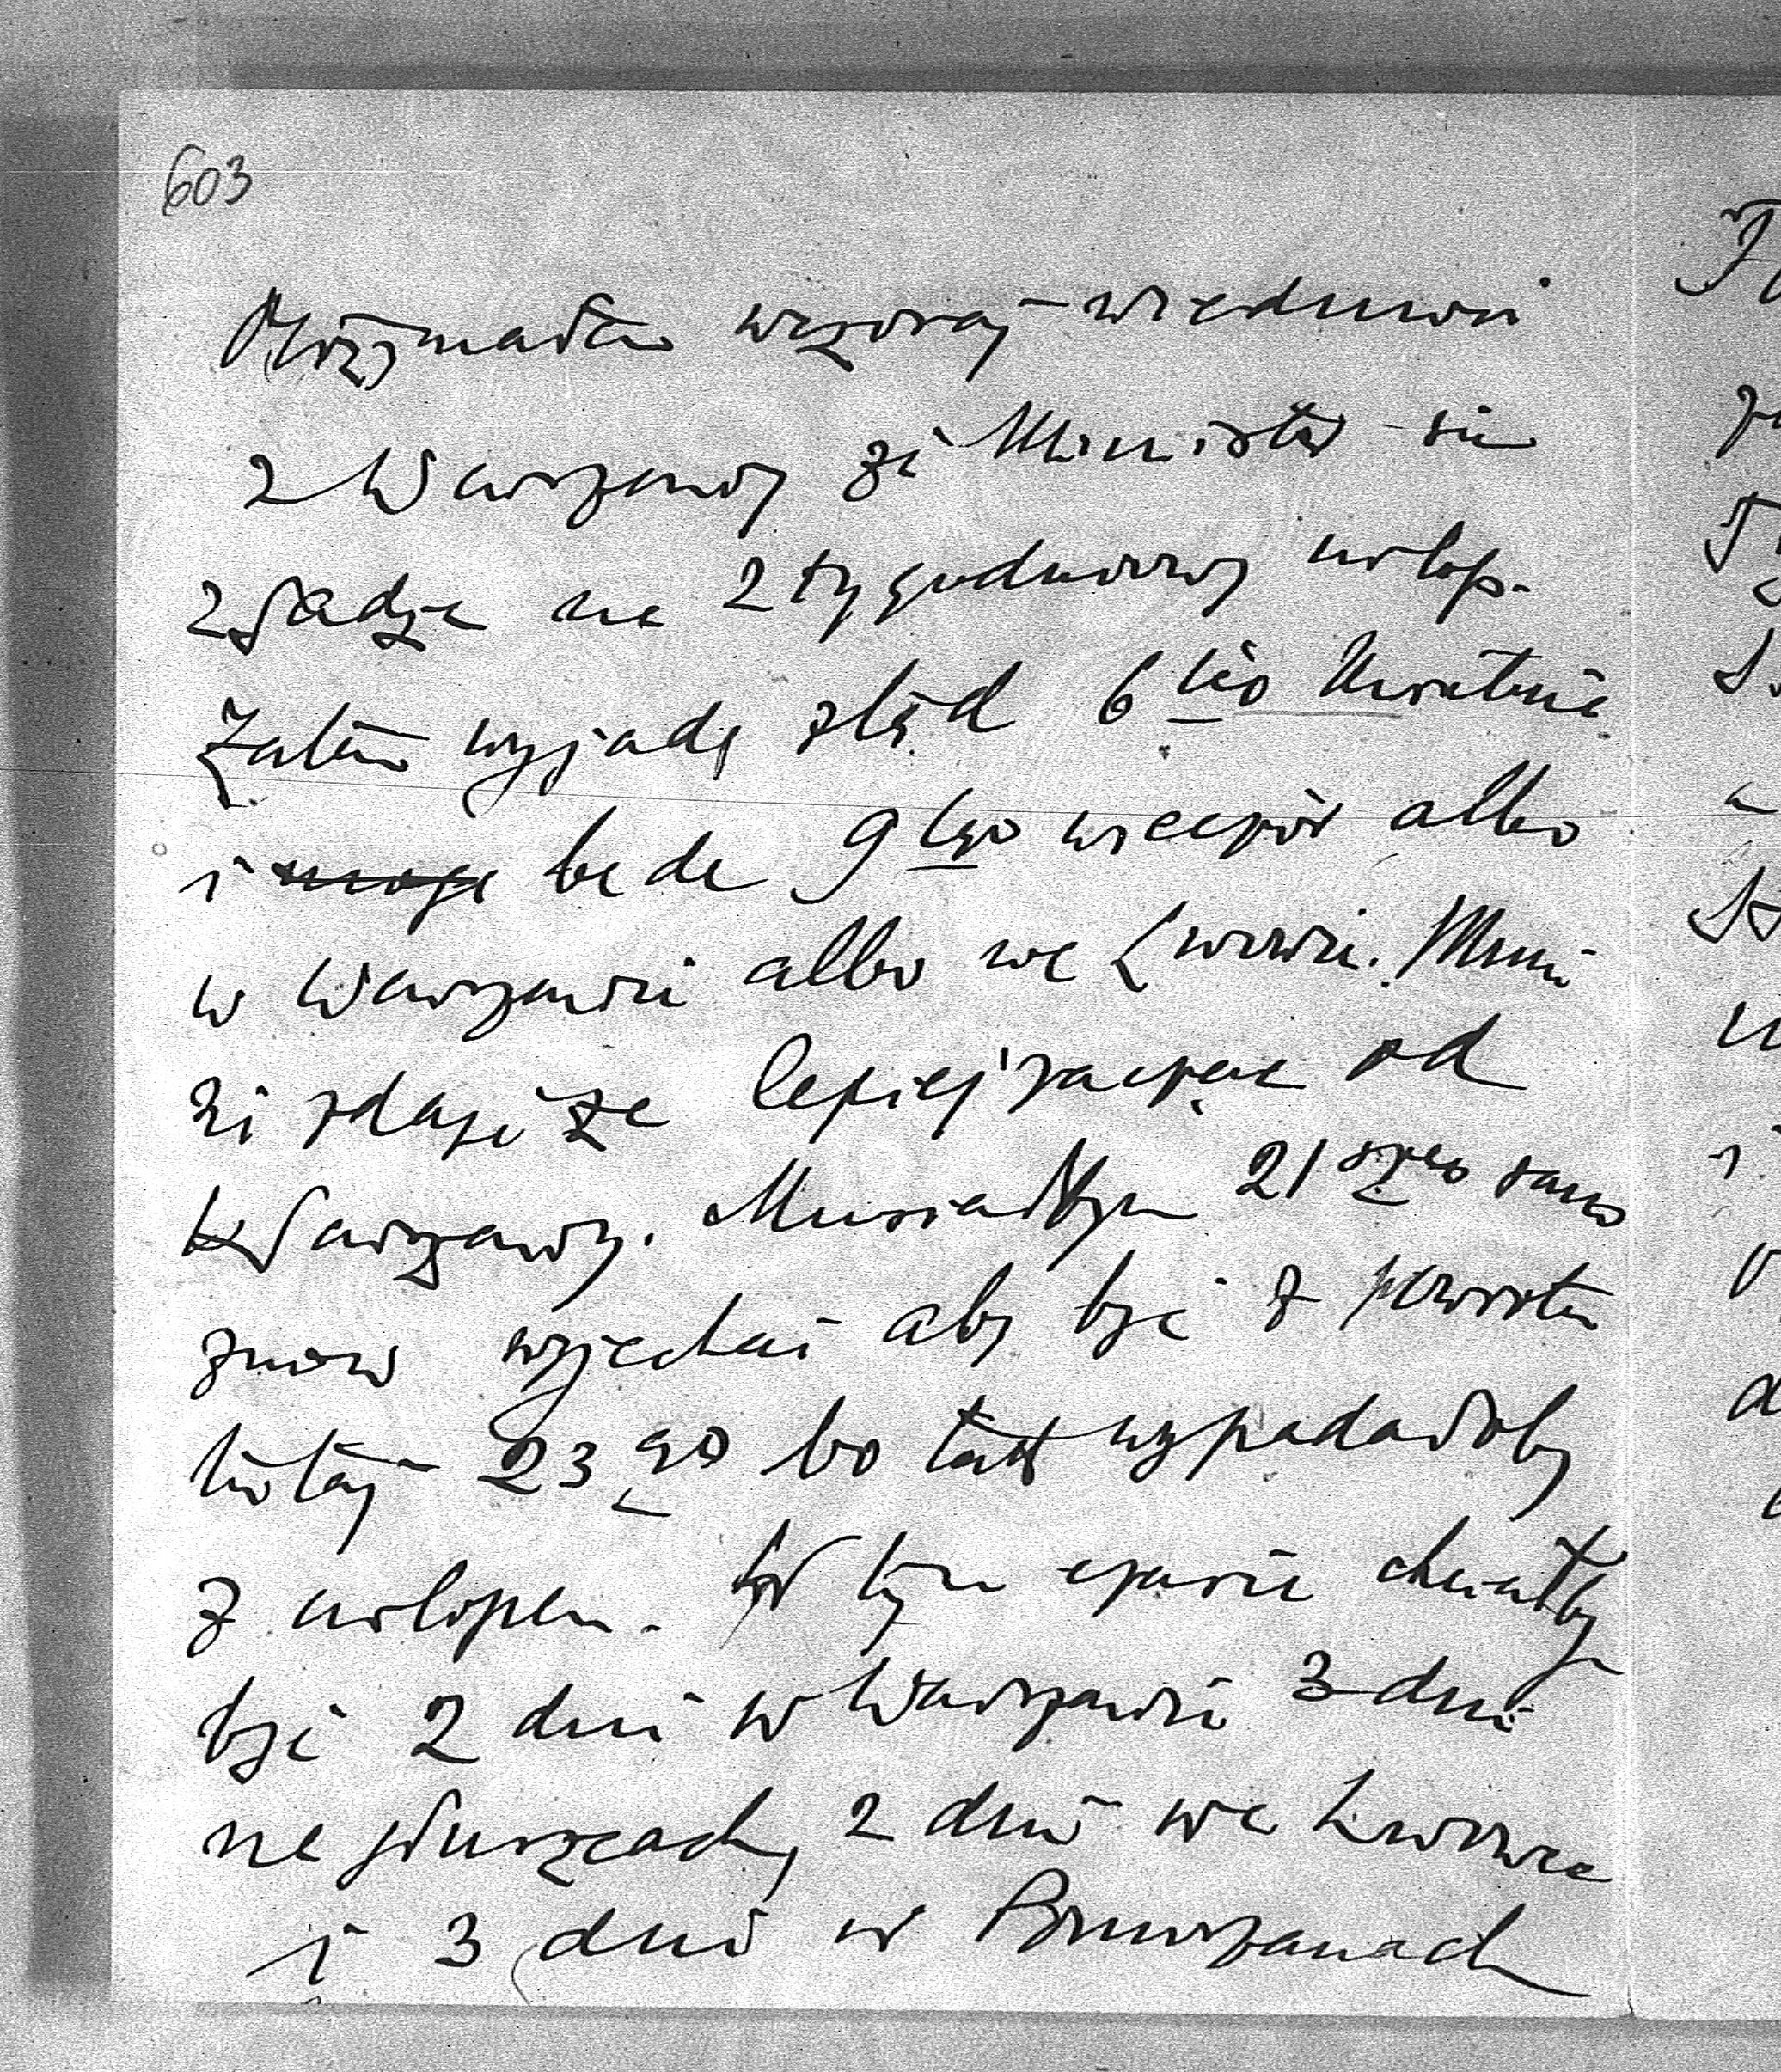 603
Otrzymałem wczoraj wiadomość
z Warszawy że Minister się
zgadza na 2 tygodniowy urlop.
Zatem wyjadę ztąd 6tego Kwietnia
i mogę będę 9tego wieczór albo
w Warszawie albo we Lwowie. Mnie
się zdaje że lepiej zacząć od
Warszawy. Musiałbym 21szego rano
znow wyjechać aby być z powrotem
tutaj 23go bo tak wypadałoby
z urlopem. W tym czasie chciałbym
być 2 dni w Warszawie 3 dni
na, 2 dni we Lwowie
i 3 dni w